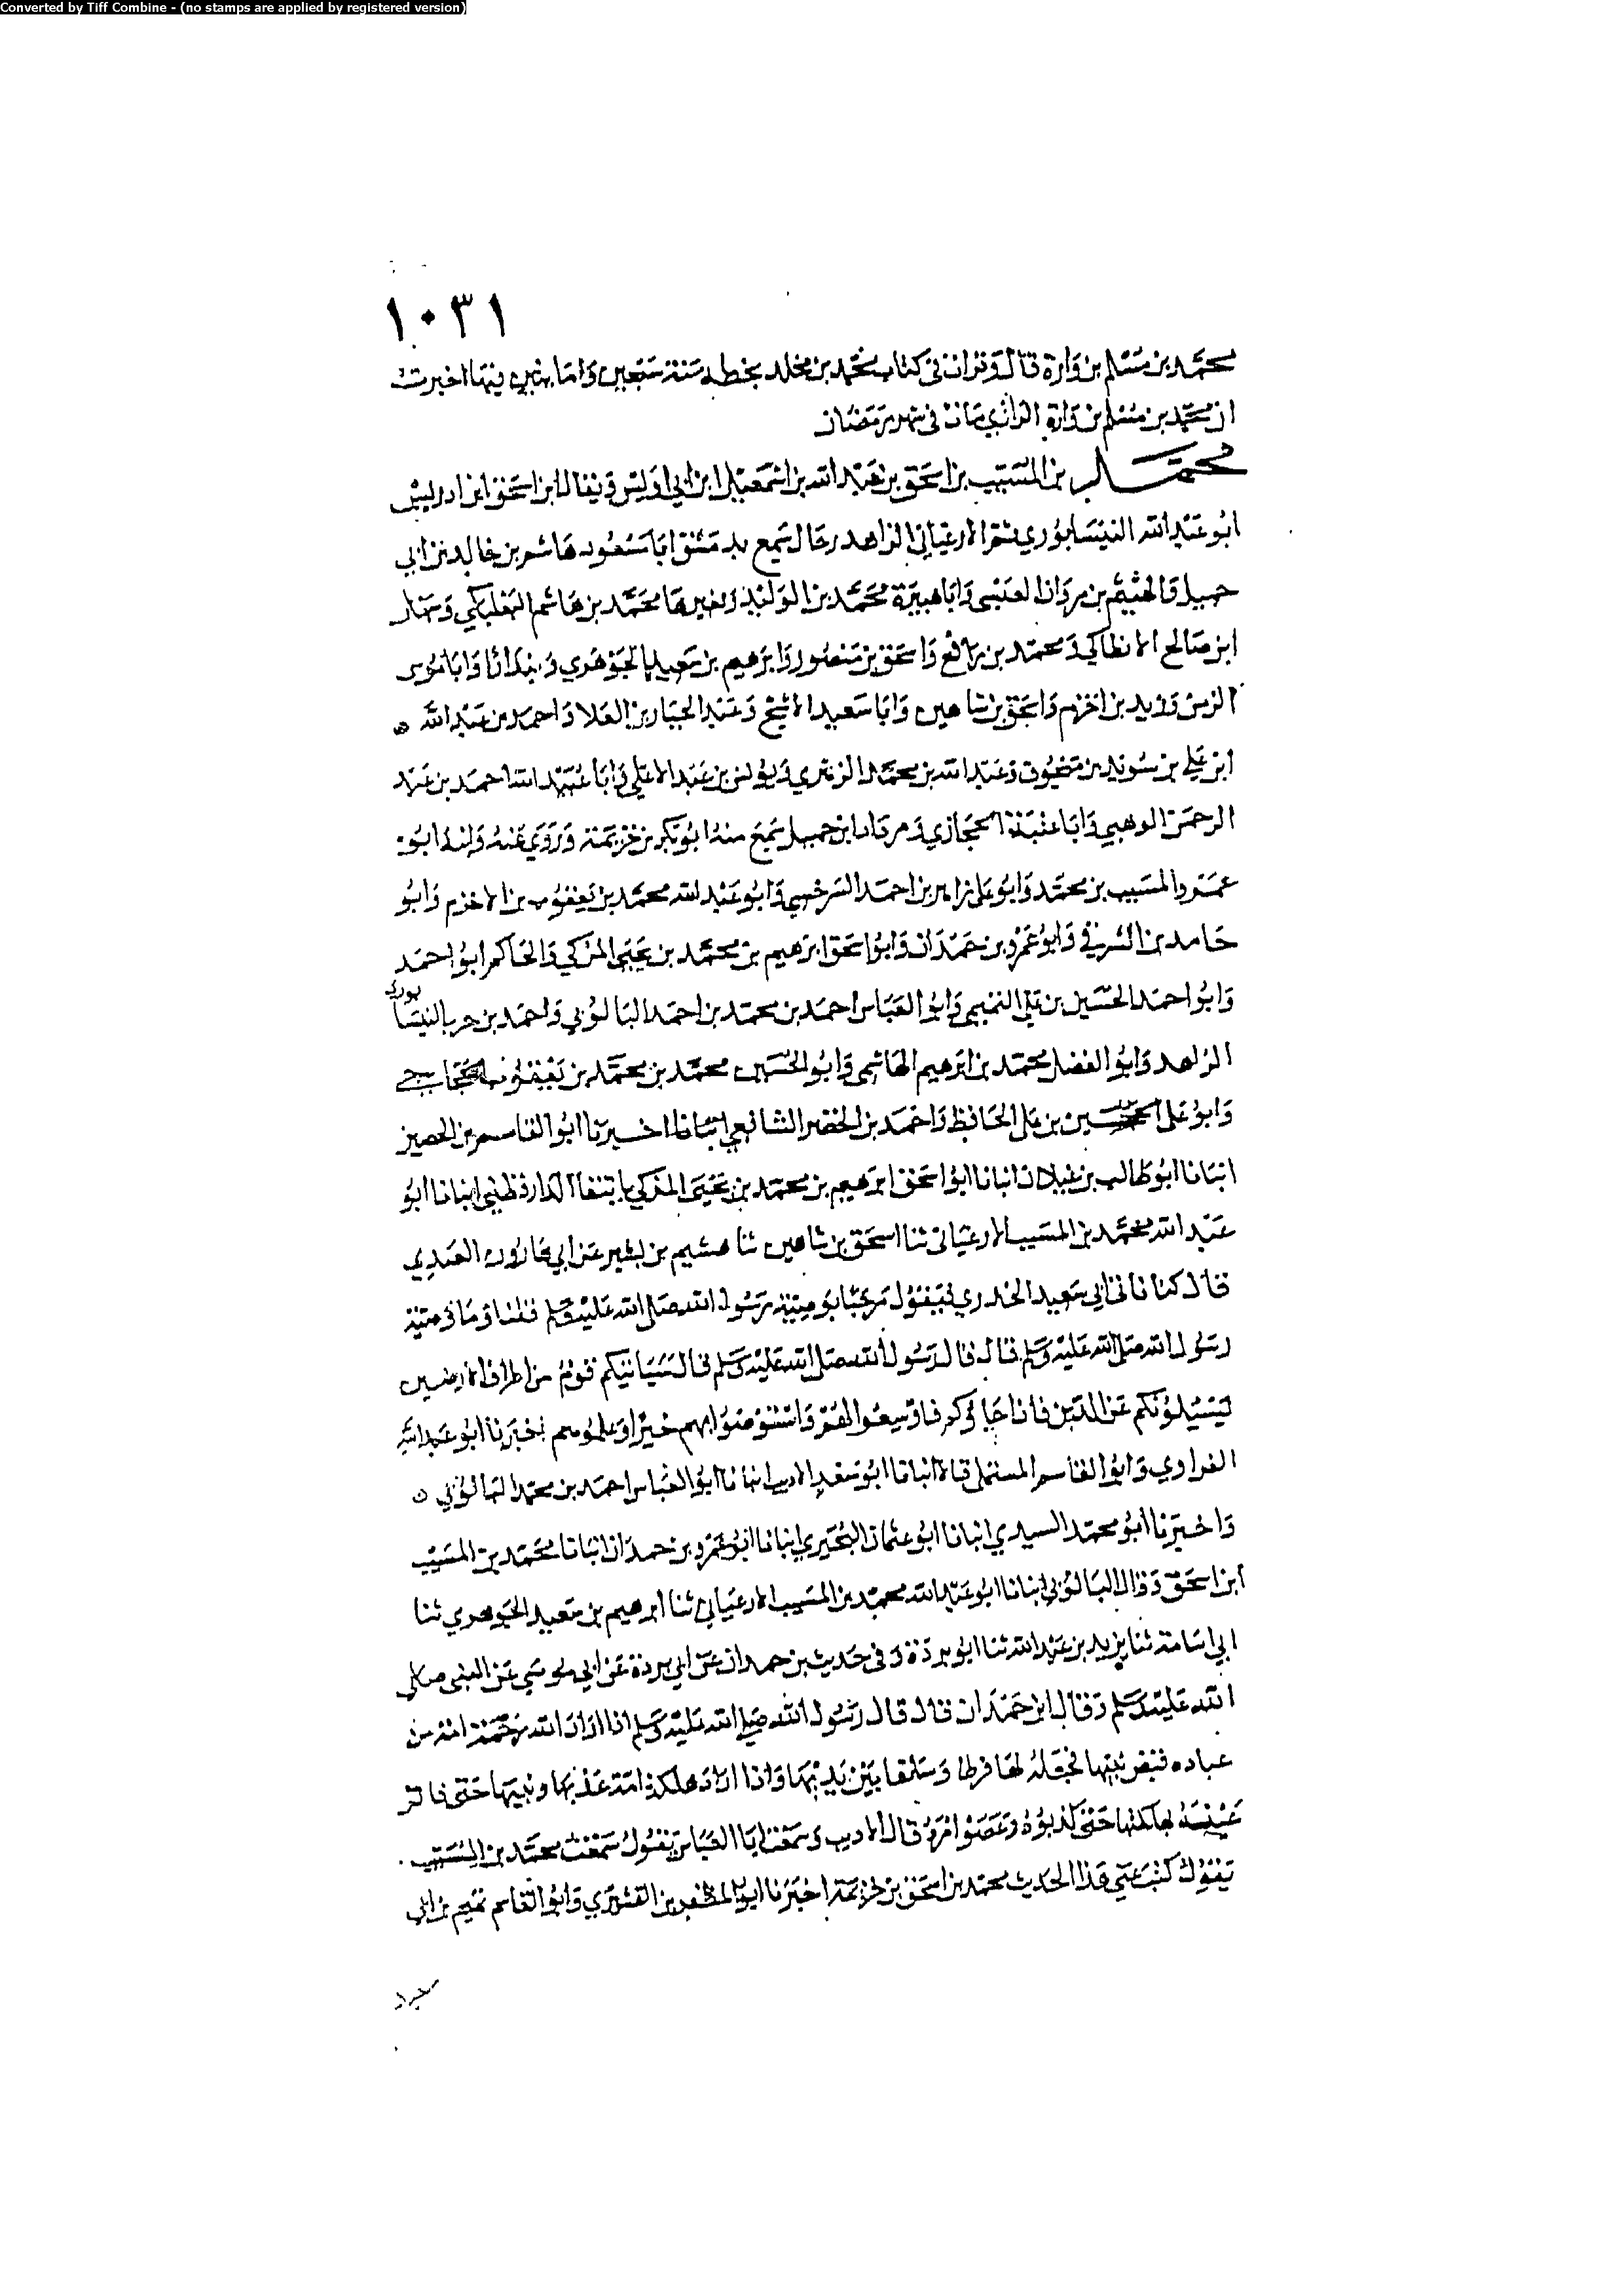 Converted by Tiff Combine - (no stamps are applied by registered version)
١٠٣١
محمد بن مسلم بن وارة قال وقرات في كتاب محمد بن مخلد بخطه سنة سبعين وماتين فيها اخبرت
ان محمد بن مسلم بن وارة الرازي مات في شهر رمضان
محمد بن المسيب بن اسحق بن عبد الله بن اسمعيل ابن ابي اويس ويقال ابن اسحق ابن ادريس
ابو عبد الله النيسابوري ثم الارغياني الزاهد رحال سمع بدمشق ابا مسعود هاشم بن خالد بن ابي
جميل والهيثم بن مروان العنسي وابا هبيرة محمد بن الوليد وبغيرها محمد بن هاشم البعلبكي
ابن صالح الانطاكي ومحمد بن رافع واسحق بن منصور وابرهيم بن سعيد الجوهري وبندارا وابا موسى
الزمن وزيد بن اخزم واسحق بن شاهين وابا سعيد الاشج وعبد الجبار بن العلا واحمد بن عبد الله
ابن علي بن سويد بن منجوف وعبد الله بن محمد الزهري ويونس بن عبد الاعلى وابا عبيد الله احمد بن عبد
الرحمن الوهبي وابا عتبة الحجازي سمع منه ابو بكر بن خزيمة وروى عنه ولده ابو
عمرو المسيب بن محمد وابو علي زاهر بن احمد السرخسي وابو عبد الله محمد بن يعقوب بن الاخرم وابو
حامد بن الشرقي وابو عمرو بن حمدان وابو اسحق ابرهيم بن محمد بن يحيى المزكي والحاكم ابو احمد
وابو احمد الحسين بن علي التميمي وابو العباس احمد بن محمد بن احمد البالوئي واحمد بن حرب النيسابوري
الزاهد وابو الفضل محمد بن ابرهيم الهاشمي وابو الحسين محمد بن محمد بن يعقوب الحجاجي
وابو علي الحسين بن علي الحافظ واحمد بن الخضر الشافعي اخبرنا ابو القاسم بن الحصين
انبانا ابو طالب بن غيلان انبانا ابو اسحق ابرهيم بن محمد بن يحيى المزكي بانتقا الدارقطني انبانا ابو
عبد الله محمد بن المسيب الارغياني ثنا اسحق بن شاهين ثنا هشيم بن بشير عن ابي هارون العبدي
قال كنا ناتي ابي سعيد الخدري فيقول مرحبا بوصية رسول الله صلى الله عليه وسلم قلنا وما وصية
رسول الله صلى الله عليه وسلم قال قال رسول الله صلى الله عليه وسلم قال سياتيكم قوم من اطراف الارضين
يسئلونكم عن الدين فاذا جاوكم فاوسعوا لهم واستوصوا بهم خيرا وعلموهم اخبرنا ابو عبد الله
الفراوي وابو القاسم المستملي قالا انبانا ابو سعد الاديب انبانا ابو العباس احمد بن محمد البالوئي
واخبرنا ابو محمد السيدي انبانا ابو عثمان البحيري انبانا ابو عمرو بن حمدان انبانا محمد بن المسيب
ابن اسحق وقال البالوئي انبانا ابو عبد الله محمد بن المسيب الارغياني ثنا ابرهيم بن سعيد الجوهري ثنا
ابي اسامة ثنا بريد بن عبد الله ثنا ابو بردة وفي حديث بن حمدان عن ابي بردة عن ابي موسى عن النبي صلى
الله عليه وسلم وقال ابن حمدان قال قال رسول الله صلى الله عليه وسلم اذا اراد الله رحمة امة من
عباده قبض نبيها فجعله لها فرطا وسلفا بين يديها واذا اراد هلكة امة عذبها ونبيها حتى فاقر
عينيه بهلكتها حتى كذبوه وعصوا امره قال الاديب وسمعت ابا العباس يقول سمعت محمد بن المسيب
يقول كتب عني هذا الحديث محمد بن اسحق بن خزيمة اخبرنا ابو المظفر بن القشيري وابو القاسم تميم بن ابي
سعيد